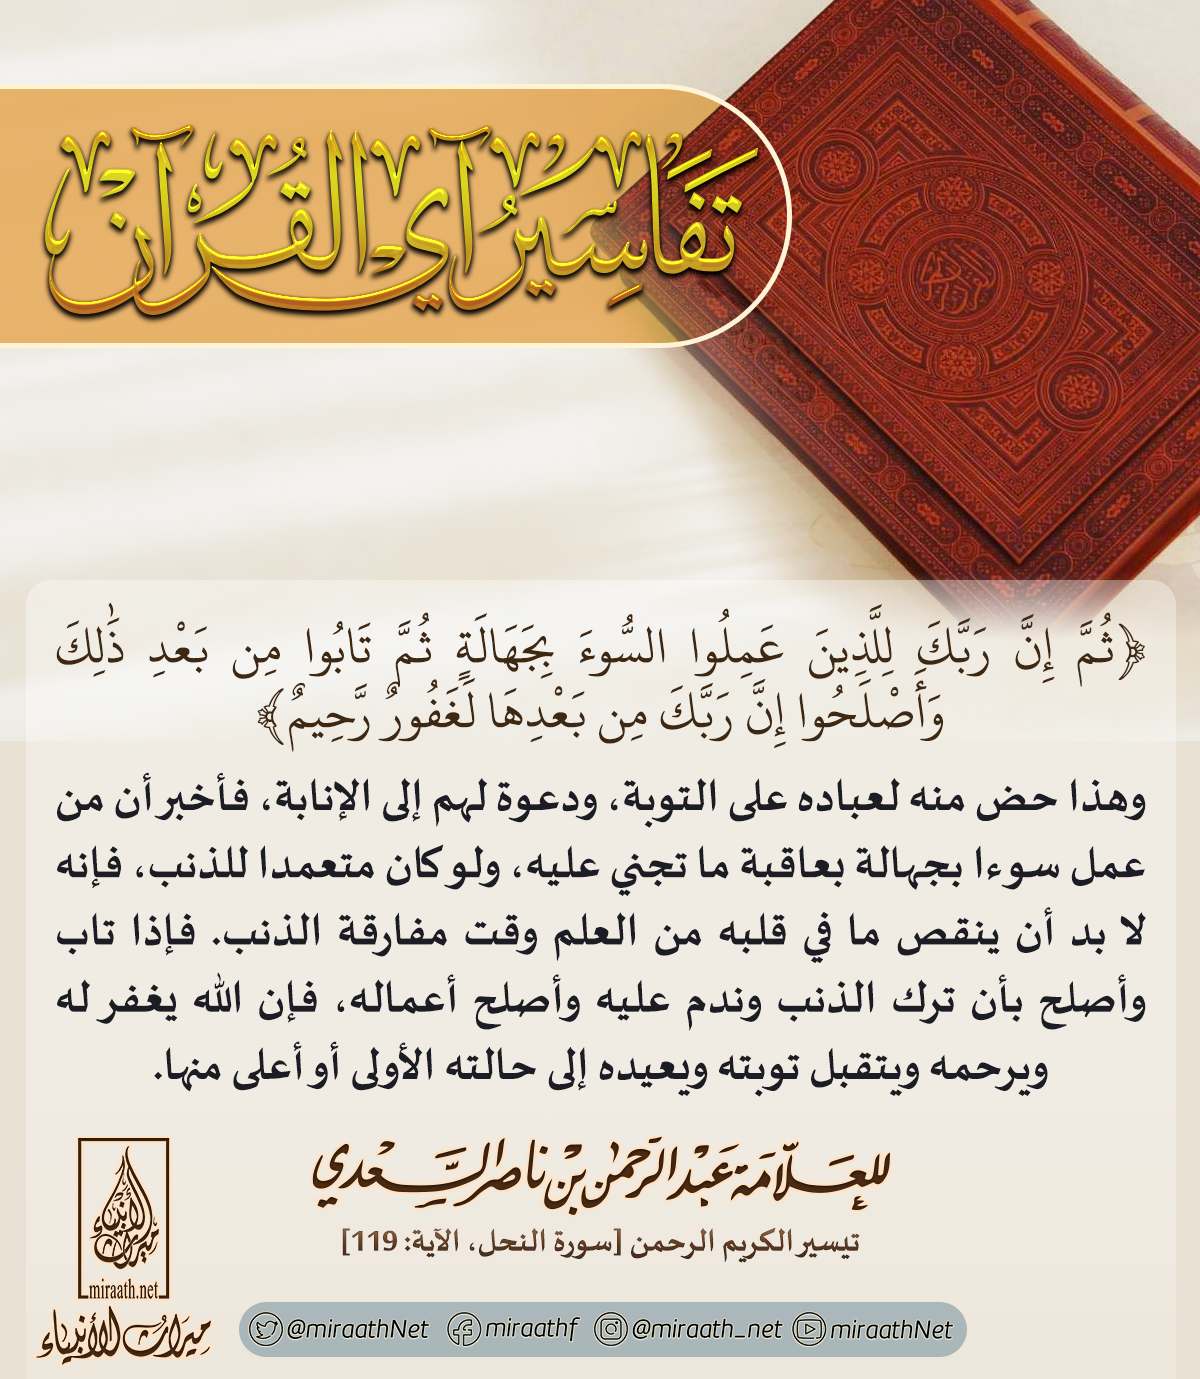 تَفَاسِيرُ آيِ القُرآن
﴿ثُمَّ إِنَّ رَبَّكَ لِلَّذِينَ عَمِلُوا السُّوءَ بِجَهَالَةٍ ثُمَّ تَابُوا مِن بَعْدِ ذَٰلِكَ
وَأَصْلَحُوا إِنَّ رَبَّكَ مِن بَعْدِهَا لَغَفُورٌ رَّحِيمٌ﴾
وهذا حض منه لعباده على التوبة، ودعوة لهم إلى الإنابة، فأخبر أن من
عمل سوءا بجهالة بعاقبة ما تجني عليه، ولو كان متعمدا للذنب، فإنه
لا بد أن ينقص ما في قلبه من العلم وقت مفارقة الذنب. فإذا تاب
وأصلح بأن ترك الذنب وندم عليه وأصلح أعماله، فإن الله يغفر له
ويرحمه ويتقبل توبته ويعيده إلى حالته الأولى أو أعلى منها.
للعلّامة عَبْد الرَّحمٰن بْن ناصر السَّعْدي
تيسير الكريم الرحمن [سورة النحل، الآية: 119]
ميراث الأنبياء
miraath.net
ميراث الأنبياء
@miraathNet miraathf @miraath_net miraathNet